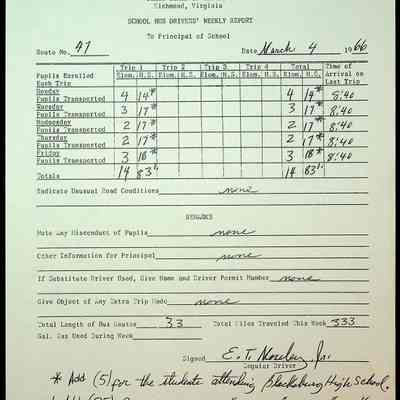 Richmond, Virginia
SCHOOL BUS DRIVERS' WEEKLY REPORT
To Principal of School
Route No. 47 Date March 4 1966
Trip 1 Trip 2 Trip 3 Trip 4 Total Time of
Pupils Enrolled Elem. H.S. Elem. H.S. Elem. H.S. Elem. H.S. Elem. H.S. Arrival on
Each Trip Last Trip
Monday
Pupils Transported 4 14* 4 14* 8:40
Tuesday
Pupils Transported 3 17* 3 17* 8:40
Wednesday
Pupils Transported 2 17* 2 17* 8:40
Thursday
Pupils Transported 2 17* 2 17* 8:40
Friday
Pupils Transported 3 18* 3 18* 8:40
Totals 14 83 14 83
Indicate Unusual Road Conditions none
REMARKS
Note Any Misconduct of Pupils none
Other Information for Principal none
If Substitute Driver Used, Give Name and Driver Permit Number none
Give Object of Any Extra Trip Made none
Total Length of Bus Routes 33 Total Miles Traveled This Week 333
Gal. Gas Used During Week
Signed E. T. Nosley, Jr.
Regular Driver
* Add (5) for the students attending Blacksburg High School.